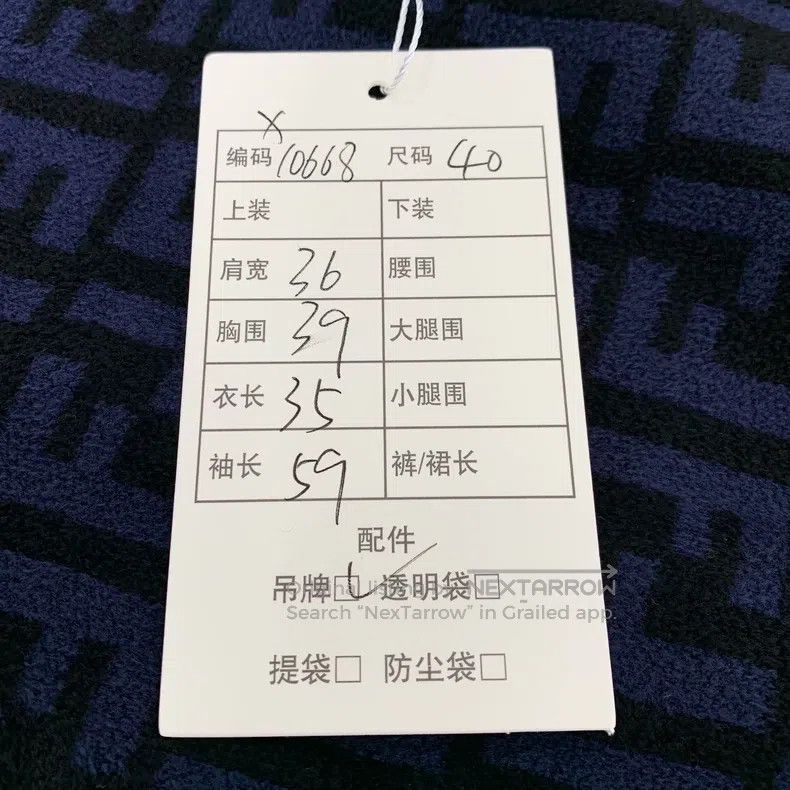 X
编码 10668 尺码 40
上装 下装
肩宽 36 腰围
胸围 39 大腿围
衣长 35 小腿围
袖长 59 裤/裙长
配件
吊牌 透明袋
NEXTARROW
Search “NexTarrow” in Grailed app.
提袋 防尘袋